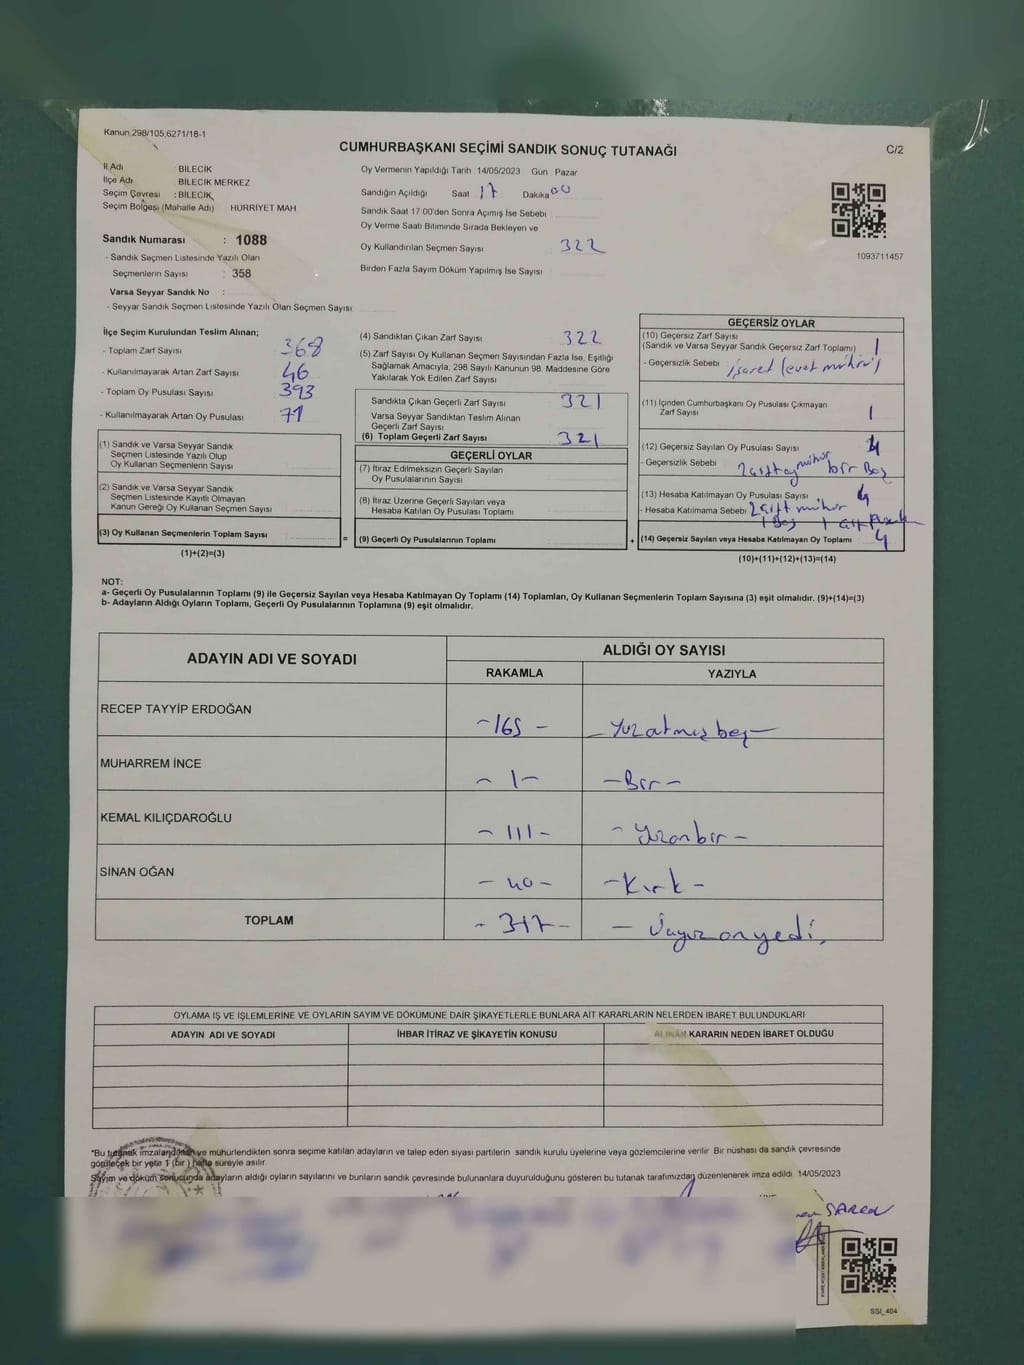 Kanun 298/105,6271/18-1
CUMHURBAŞKANI SEÇİMİ SANDIK SONUÇ TUTANAĞI
C/2
İl Adı : BİLECİK
İlçe Adı : BİLECİK MERKEZ
Seçim Çevresi : BİLECİK
Seçim Bölgesi (Mahalle Adı) HÜRRİYET MAH
Sandık Numarası : 1088
- Sandık Seçmen Listesinde Yazılı Olan
Seçmenlerin Sayısı : 358
Varsa Seyyar Sandık No :
- Seyyar Sandık Seçmen Listesinde Yazılı Olan Seçmen Sayısı
Oy Vermenin Yapıldığı Tarih 14/05/2023 Gün Pazar
Sandığın Açıldığı Saat 17 Dakika 00
Sandık Saat 17 00'den Sonra Açımış İse Sebebi
Oy Verme Saati Bitiminde Sırada Bekleyen ve
Oy Kullandırılan Seçmen Sayısı 322
Birden Fazla Sayım Döküm Yapılmış İse Sayısı
1093711457
İlçe Seçim Kurulundan Teslim Alınan;
- Toplam Zarf Sayısı 368
- Kullanılmayarak Artan Zarf Sayısı 46
- Toplam Oy Pusulası Sayısı 393
- Kullanılmayarak Artan Oy Pusulası 71
(1) Sandık ve Varsa Seyyar Sandık
Seçmen Listesinde Yazılı Olup
Oy Kullanan Seçmenlerin Sayısı
(2) Sandık ve Varsa Seyyar Sandık
Seçmen Listesinde Kayıtlı Olmayan
Kanun Gereği Oy Kullanan Seçmen Sayısı
(3) Oy Kullanan Seçmenlerin Toplam Sayısı
(1)+(2)=(3)
(4) Sandıktan Çıkan Zarf Sayısı 322
(5) Zarf Sayısı Oy Kullanan Seçmen Sayısından Fazla İse, Eşitliği
Sağlamak Amacıyla, 298 Sayılı Kanunun 98. Maddesine Göre
Yakılarak Yok Edilen Zarf Sayısı
Sandıkta Çıkan Geçerli Zarf Sayısı 321
Varsa Seyyar Sandıktan Teslim Alınan
Geçerli Zarf Sayısı
(6) Toplam Geçerli Zarf Sayısı 321
GEÇERLİ OYLAR
(7) İtiraz Edilmeksizin Geçerli Sayılan
Oy Pusulalarının Sayısı
(8) İtiraz Üzerine Geçerli Sayılan veya
Hesaba Katılan Oy Pusulası Toplamı
=
(9) Geçerli Oy Pusulalarının Toplamı
+
GEÇERSİZ OYLAR
(10) Geçersiz Zarf Sayısı
(Sandık ve Varsa Seyyar Sandık Geçersiz Zarf Toplamı) 1
- Geçersizlik Sebebi işaret (evet mührü)
(11) İçinden Cumhurbaşkanı Oy Pusulası Çıkmayan
Zarf Sayısı 1
(12) Geçersiz Sayılan Oy Pusulası Sayısı 4
- Geçersizlik Sebebi mühür bir Boş
(13) Hesaba Katılmayan Oy Pusulası Sayısı 4
- Hesaba Katılmama Sebebi 2 çift mühür
1 Boş 1 çift
(14) Geçersiz Sayılan veya Hesaba Katılmayan Oy Toplamı 4
(10)+(11)+(12)+(13)=(14)
NOT:
a- Geçerli Oy Pusulasının Toplamı (9) ile Geçersiz Sayılan veya Hesaba Katılmayan Oy Toplamı (14) Toplamları, Oy Kullanan Seçmenlerin Toplam Sayısına (3) eşit olmalıdır. (9)+(14)=(3)
b- Adayların Aldığı Oyların Toplamı, Geçerli Oy Pusulalarının Toplamına (9) eşit olmalıdır.
ADAYIN ADI VE SOYADI
ALDIĞI OY SAYISI
RAKAMLA YAZIYLA
RECEP TAYYİP ERDOĞAN - 165 - - Yüzatmışbeş -
MUHARREM İNCE - 1 - - Bir -
KEMAL KILIÇDAROĞLU - 111 - - Yüzonbir -
SİNAN OĞAN - 40 - - Kırk -
TOPLAM - 317 - - Üçyüzonyedi.
OYLAMA İŞ VE İŞLEMLERİNE VE OYLARIN SAYIM VE DÖKÜMÜNE DAİR ŞİKAYETLERLE BUNLARA AİT KARARLARIN NELERDEN İBARET BULUNDUKLARI
ADAYIN ADI VE SOYADI İHBAR İTİRAZ VE ŞİKAYETİN KONUSU ALINAN KARARIN NEDEN İBARET OLDUĞU
*Bu tutanak imzalandıktan ve mühürlendikten sonra seçime katılan adayların ve talep eden siyasi partilerin sandık kurulu üyelerine veya gözlemcilerine verilir. Bir nüshası da sandık çevresinde
görülecek bir yere 1 (bir) hafta süreyle asılır.
Sayım ve döküm sonucunda adayların aldığı oyların sayılarını ve bunların sandık çevresinde bulunanlara duyurulduğunu gösteren bu tutanak tarafımızdan düzenlenerek imza edildi. 14/05/2023
SSI_404